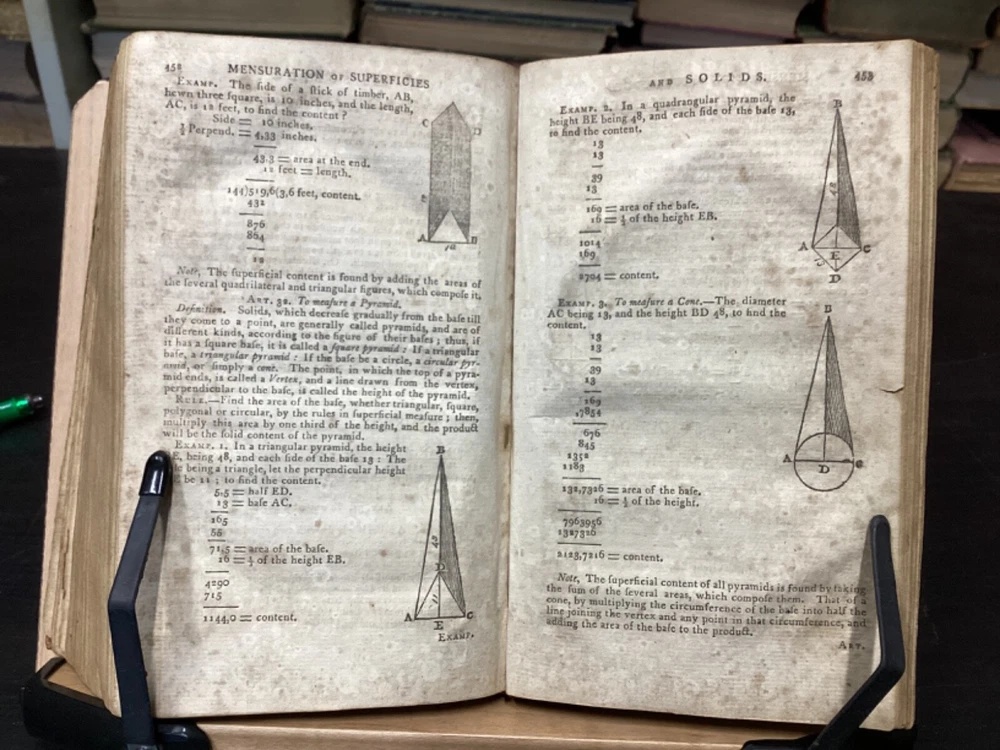 452 MENSURATION OF SUPERFICIES
EXAMP. The ſide of a ſtick of timber, AB,
hewn three ſquare, is 10 inches, and the length,
AC, is 12 feet, to find the content?
Side = 10 inches.
½ Perpend. = 4,33 inches.
43,3 = area at the end.
12 feet = length.
144)519,6(3,6 feet, content.
432
876
864
12
C
D
E
A
B
10
Note, The ſuperficial content is found by adding the areas of
the ſeveral quadrilateral and triangular figures, which compoſe it.
ART. 32. To meaſure a Pyramid.
Definition. Solids, which decreaſe gradually from the baſe till
they come to a point, are generally called pyramids, and are of
different kinds, according to the figure of their baſes; thus, if
it has a ſquare baſe, it is called a ſquare pyramid: If a triangular
baſe, a triangular pyramid: If the baſe be a circle, a circular pyr-
amid, or ſimply a cone. The point, in which the top of a pyra-
mid ends, is called a Vertex, and a line drawn from the vertex,
perpendicular to the baſe, is called the height of the pyramid.
RULE.—Find the area of the baſe, whether triangular, ſquare,
polygonal or circular, by the rules in ſuperficial meaſure; then,
multiply this area by one third of the height, and the product
will be the ſolid content of the pyramid.
EXAMP. 1. In a triangular pyramid, the height
E, being 48, and each ſide of the baſe 13: The
being a triangle, let the perpendicular height
be 11; to find the content.
5,5 = half ED.
13 = baſe AC.
165
55
71,5 = area of the baſe.
16 = ⅓ of the height EB.
4290
715
1144,0 = content.
B
48
D
11
A
E
C
EXAMP.
AND SOLIDS. 453
EXAMP. 2. In a quadrangular pyramid, the
height BE being 48, and each ſide of the baſe 13,
to find the content.
13
13
39
13
169 = area of the baſe.
16 = ⅓ of the height EB.
1014
169
2704 = content.
B
48
A
E
C
13
D
EXAMP. 3. To meaſure a Cone.—The diameter
AC being 13, and the height BD 48, to find the
content.
13
13
39
13
169
,7854
676
845
1352
1183
132,7326 = area of the baſe.
16 = ⅓ of the height.
7963956
1327326
2123,7216 = content.
B
A
D
C
Note, The ſuperficial content of all pyramids is found by taking
the ſum of the ſeveral areas, which compoſe them. That of a
cone, by multiplying the circumference of the baſe into half the
line joining the vertex and any point in that circumference, and
adding the area of the baſe to the product.
ART.